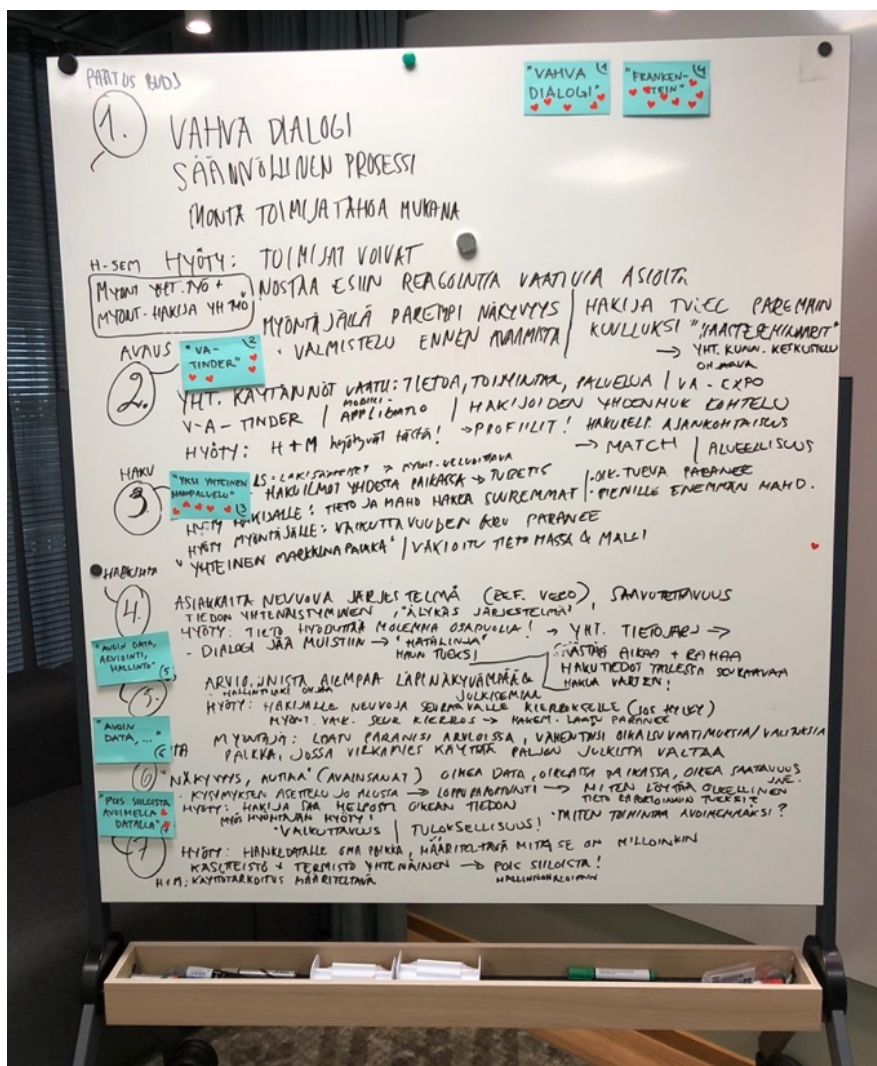 "VAHVA DIALOGI" (1
"FRANKEN-STEIN" (4
1.
VAHVA DIALOGI
SÄÄNNÖLLINEN PROSESSI
MONTA TOIMIJATAHOA MUKANA
H-SEM HYÖTY: TOIMIJAT VOIVAT
NOSTAA ESIIN REAGOINTIA VAATIVIA ASIOITA
MYÖNT YHT. TYÖ +
MYÖNT.-HAKIJA YH TYÖ
MYÖNTÄJÄLLÄ PAREMPI NÄKYVYYS
· VALMISTELU ENNEN AVAAMISTA
HAKIJA TULEE PAREMMIN
KUULLUKSI "HAASTESEMINAARIT"
→ YHT. KUNN. KESKUSTELU
OHJAAVA
AVAUS
"VA-TINDER" (2
2.
YHT. KÄYTÄNNÖT VAATII: TIETOA, TOIMINTAA, PALVELUA / VA-EXPO
V-A-TINDER / MOBIILI-APPLIKAATIO / HAKIJOIDEN YHDENMUK KOHTELU
HYÖTY: H + M hyötyvät tästä! → PROFIILIT! HAKUKELP. AJANKOHTAISUUS
→ MATCH | ALUEELLISUUS
HAKU
"YKSI YHTEINEN HAKUPALVELU" (3
3
HAKUILMOT YHDESTÄ PAIKASSA → TUBETUS
· OIK.TURVA PARANEE
HYÖTY HAKIJALLE: TIETO JA MAHD HAKEA SUUREMMAT
· PIENILLE ENEMMÄN MAHD.
HYÖTY MYÖNTÄJÄLLE: VAIKUTTAVUUDEN ARV PARANEE
"YHTEINEN MARKKINAPAIKKA" / VAKIOITU TIETOMASSA & MALLI
4.
ASIAKKAITA NEUVOVA JÄRJESTELMÄ (REF. VERO), SAAVUTETTAVUUS
TIEDON YHTENÄISTYMINEN, "ÄLYKÄS JÄRJESTELMÄ"
HYÖTY: TIETO HYÖDYTTÄÄ MOLEMMIA OSAPUOLIA! → YHT. TIETOJÄRJ →
- DIALOGI JÄÄ MUISTIIN → "HÄTÄLINJA"
HAUN TUEKSI
SÄÄSTÄÄ AIKAA + RAHAA
HAKUTIEDOT TALLESSA SEURAAVAA
HAKUA VARTEN!
"AVOIN DATA, ARVIOINTI, HALLINTO" (5
5.
ARVIOINNISTA AIEMPAA LÄPINÄKYVÄMPÄÄ &
JULKISEMPAA
HALLINTOLAKI OHJAA
HYÖTY: HAKIJALLE NEUVOJA SEURAAVALLE KIERROKSELLE (JOS HYLKY)
MYÖNT. VAIK. SEUR KIERROS → HAKEM. LAATU PARANEE
"AVOIN DATA, ..." (6
MYÖNTÄJÄ: LAATU PARANISI ARVIOISSA, VÄHENTÄISI OIKAISUVAATIMUKSIA/VALITUKSIA
PAIKKA, JOSSA VIRKAMIES KÄYTTÄÄ PALJON JULKISTA VALTAA
6
"NÄKYVYYS, AUTTAA" (AVAINSANAT) OIKEA DATA, OIKEASSA PAIKASSA, OIKEA SAATAVUUS
JNE.
· KYSYMYKSEN ASETTELU JO ALUSTA → LOPPURAPORTOINTI → MITEN LÖYTÄÄ OLEELLINEN
TIETO RAPORTOINNIN TUEKSI?
HYÖTY: HAKIJA SAA HELPOSTI OIKEAN TIEDON
MYÖS MYÖNTÄJÄN HYÖTY!
· MITEN TOIMINTAA AVOIMEMMAKSI?
"VAIKUTTAVUUS | TULOKSELLISUUS!
"POIS SIILOISTA AVOIMELLA DATALLA" (7
7
HYÖTY: HANKEDATALLE OMA PAIKKA, MÄÄRITELTÄVÄ MITÄ SE ON MILLOINKIN
KÄSITTEISTÖ + TERMISTÖ YHTENÄINEN → POIS SIILOISTA!
HALLINNONALOITTAIN
H+M: KÄYTTÖTARKOITUS MÄÄRITELTÄVÄ